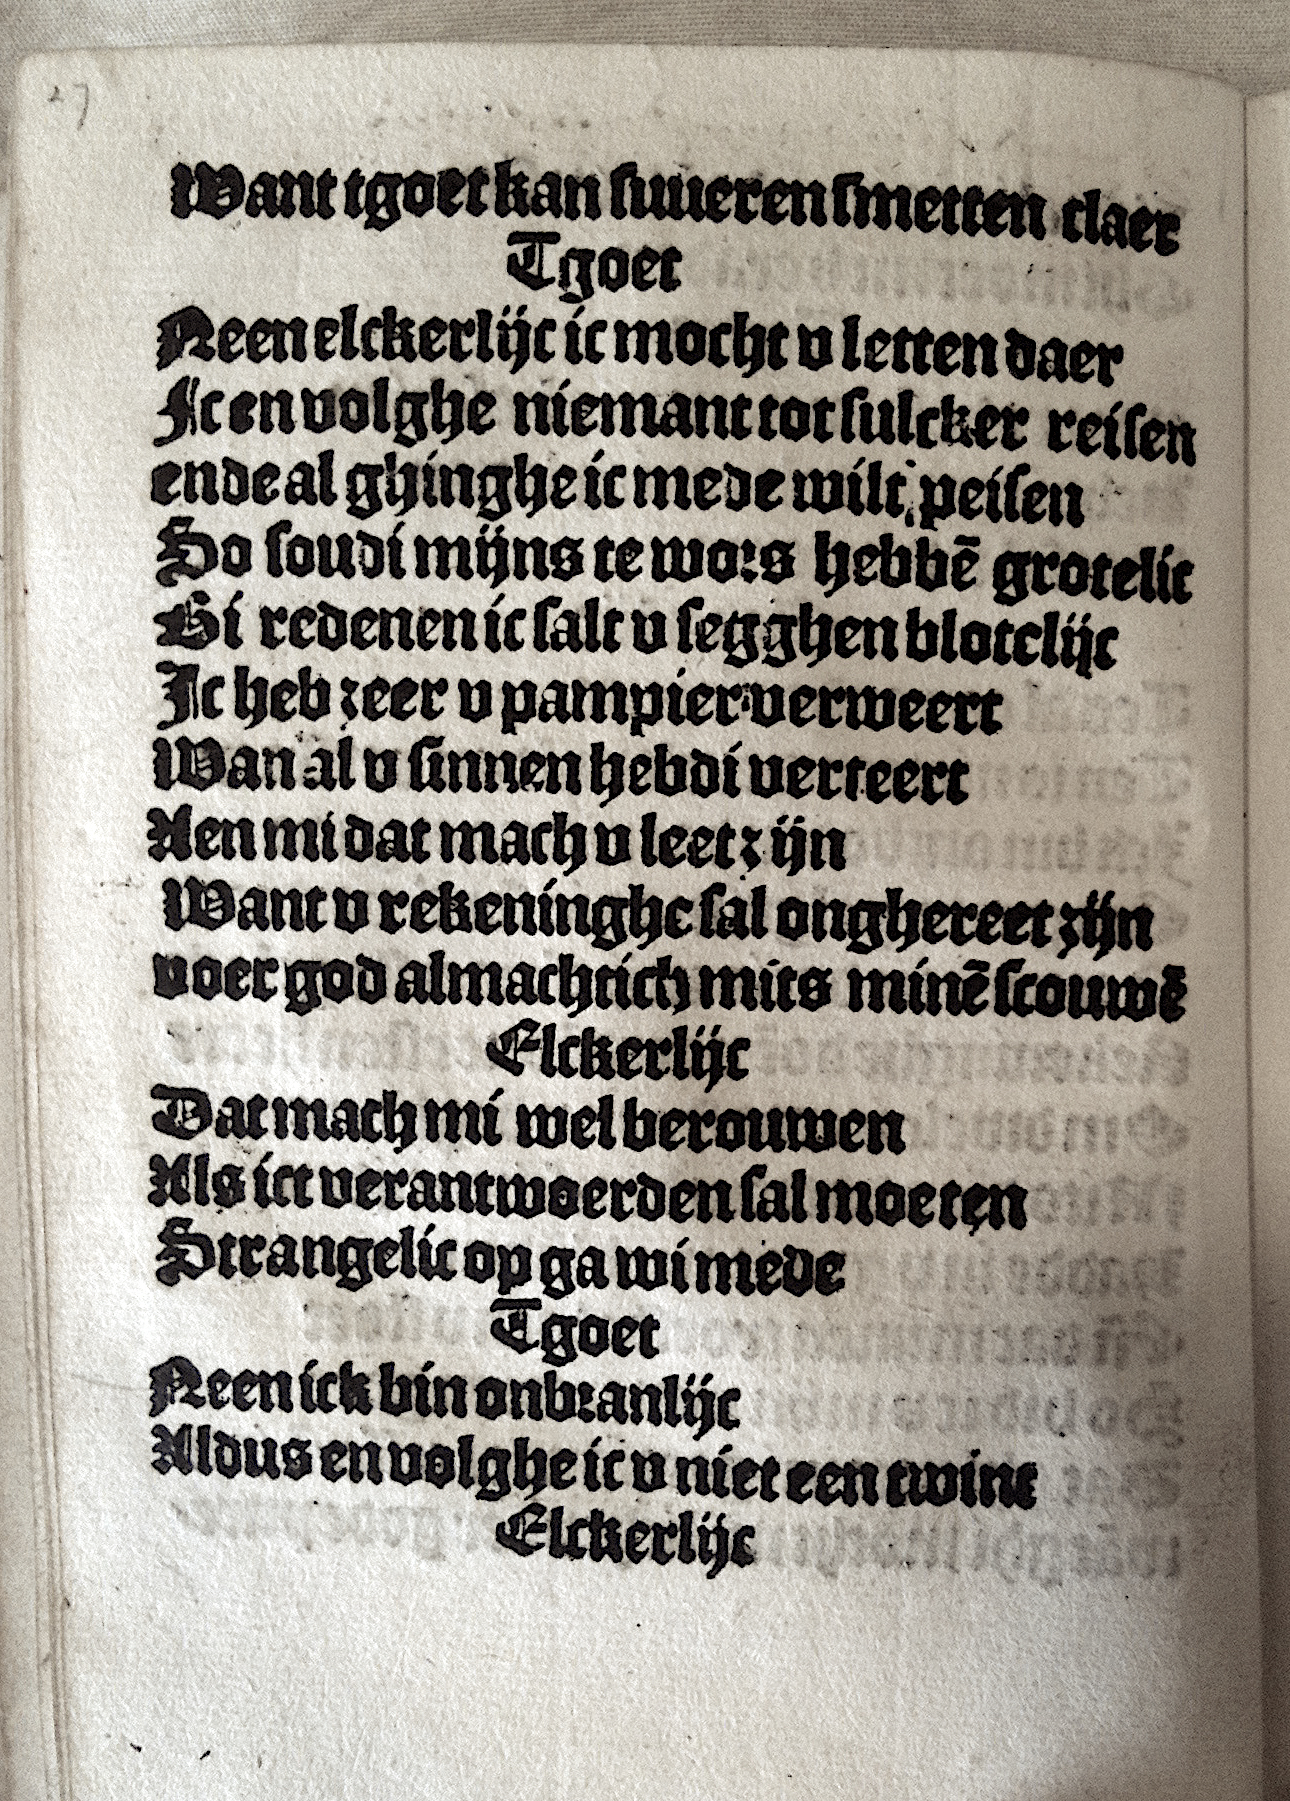 27
Want tgoet kan suueren smetten claer
Tgoet
Neen elckerlijc ic mocht v letten daer
Ic en volghe niemant tot sulcker reisen
ende al ghinghe ic mede wilt peisen
So soudi mijns te wors hebbē grotelic
Bi redenen ic salt v segghen blotelijc
Ic heb zeer v pampier verweert
Wan al v sinnen hebdi verteert
Aen mi dat mach v leet zijn
Want v rekeninghe sal onghereet zijn
voer god almachtich mits minē scouwē
Elckerlijc
Dat mach mi wel berouwen
Als ict verantwoerden sal moeten
Strangelic op ga wi mede
Tgoet
Neen ick bin onbranlijc
Aldus en volghe ic v niet een twint
Elckerlijc